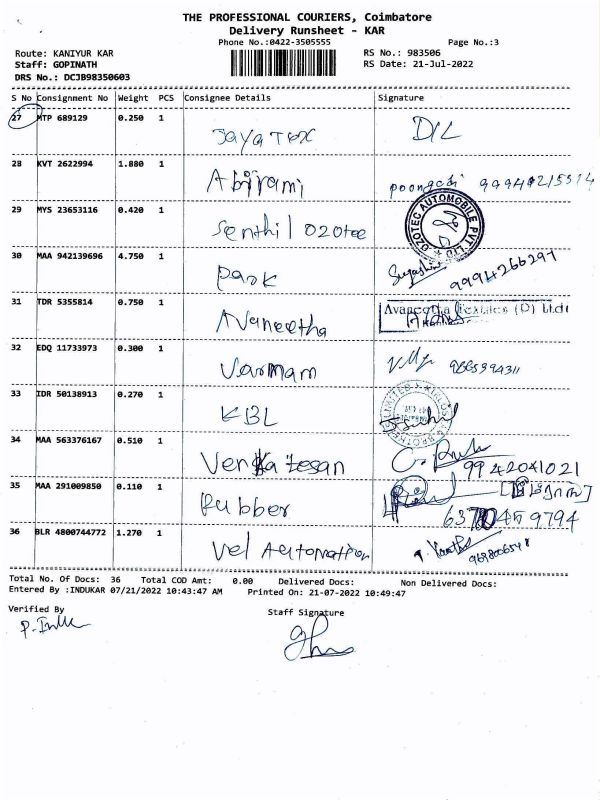 THE PROFESSIONAL COURIERS, Coimbatore
Delivery Runsheet - KAR
Phone No.:0422-3505555 Page No.:3
Route: KANIYUR KAR RS No.: 983506
Staff: GOPINATH RS Date: 21-Jul-2022
DRS No.: DCJB98350603
S No Consignment No Weight PCS Consignee Details Signature
27 MTP 689129 0.250 1 Jaya Tex D/L
28 KVT 2622994 1.880 1 Abirami poongodi
29 MYS 23653116 0.420 1 Senthil Ozotee OZOTEC AUTOMOBILE PVT LTD
30 MAA 942139696 4.750 1 Park 9994266297
31 TDR 5355814 0.750 1 Avaneetha Avaneetha Textiles (P) Ltd
32 EDQ 11733973 0.300 1 Varmam 9865994311
33 IDR 50138913 0.270 1 KBL
34 MAA 563376167 0.510 1 Venkatesan 9942041021
35 MAA 291009850 0.110 1 Rubber
36 BLR 4800744772 1.270 1 Vel Automation
Total No. Of Docs: 36 Total COD Amt: 0.00 Delivered Docs: Non Delivered Docs:
Entered By :INDUKAR 07/21/2022 10:43:47 AM Printed On: 21-07-2022 10:49:47
Verified By Staff Signature